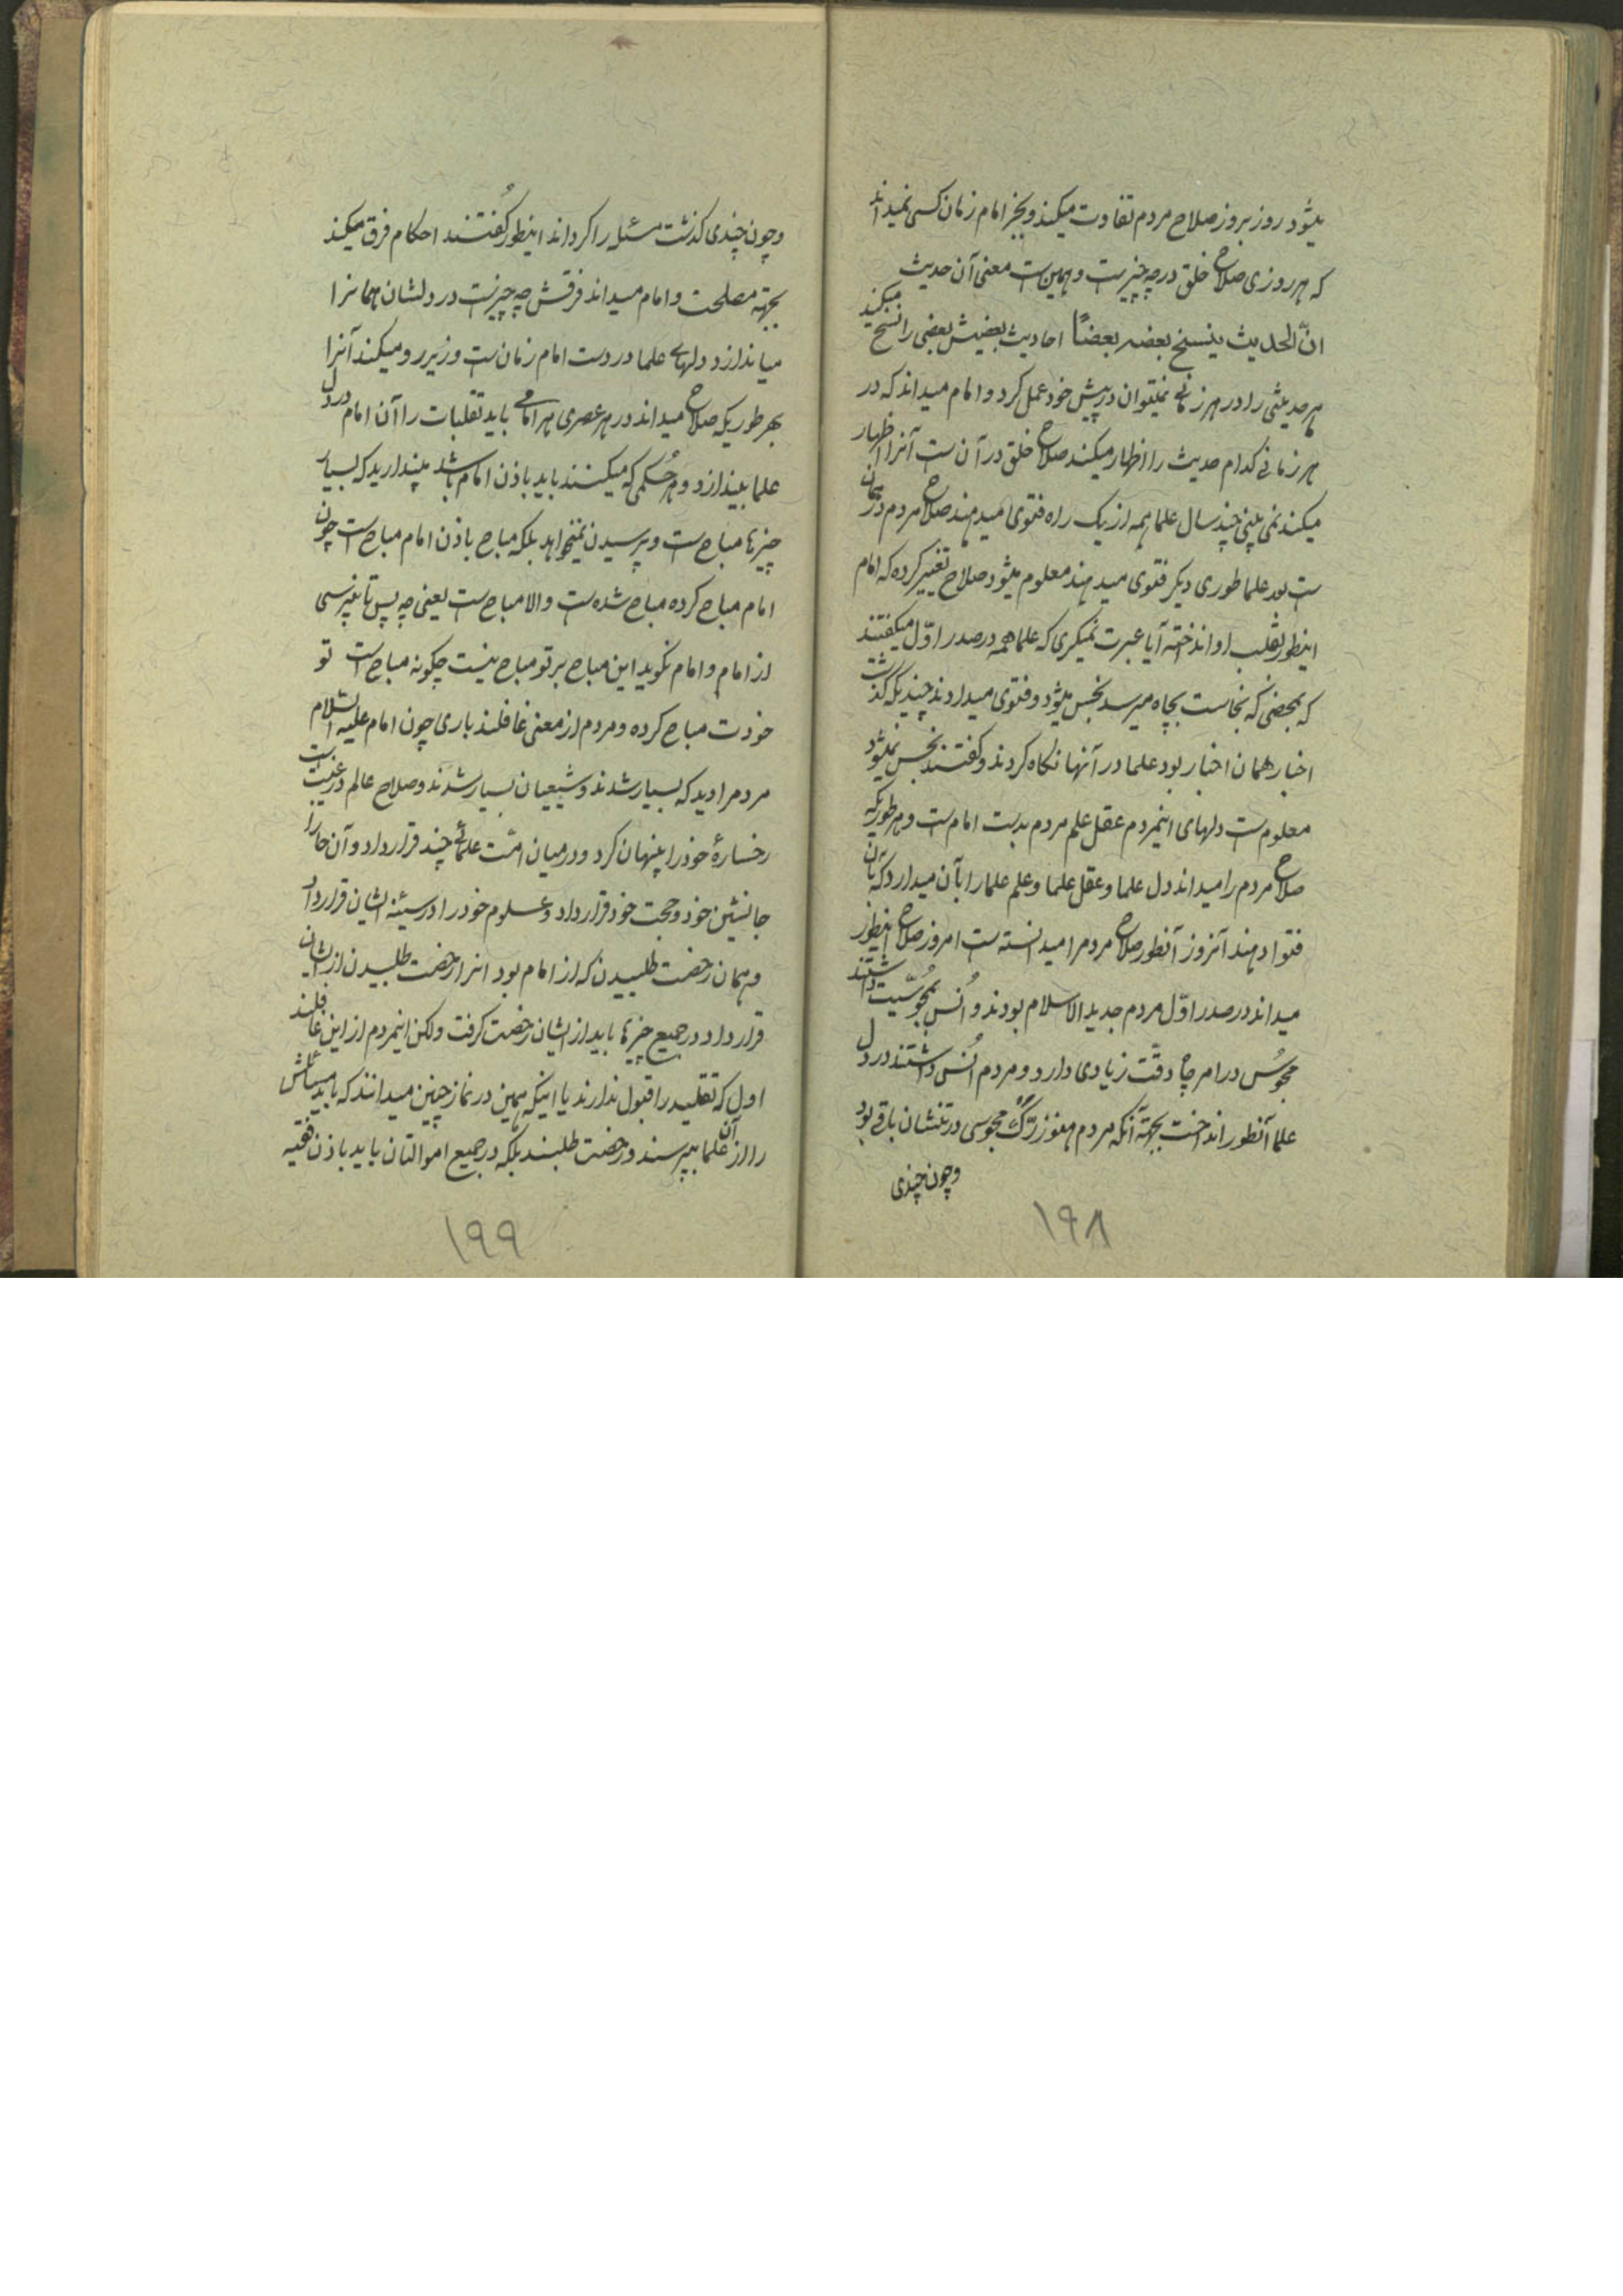 میشود روز بروز صلاح مردم تفاوت میکند و بجز امام زمان کسی نمیداند
که هر روزی صلاح خلق در چه چیز است و همین است معنی آن حدیث
انّ الحدیث ینسخ بعضه بعضاً احادیث بعضیش بعضی را نسخ میکند
هر حدیثی را در هر زمانی نمیتوان در پیش خود عمل کرد و امام میداند که در
هر زمانی کدام حدیث را اظهار میکند صلاح خلق در آن است آنرا اظهار
میکند نمی بینی چند سال علما همه از یک راه فتوی میدهند صلاح مردم در همان
است بعد علما طوری دیگر فتوی میدهند معلوم میشود صلاح تغییر کرده که امام
اینطور بقلب او انداخته آیا عبرت نمیگیری که علما همه در صدر اوّل میگفتند
که بمحضی که نجاست بچاه میرسد نجس میشود و فتوی میدادند چندیکه گذشت
اخبار همان اخبار بود علما در آنها نگاه کردند و گفتند نجس نمیشود
معلوم است دلهای اینمردم عقل علم مردم بدست امام است و هر طوریکه
صلاح مردم را میداند دل علما و عقل علما و علم علما را بآن میدارد که بآن
فتوا دهند آنروز آنطور صلاح مردم را میدانسته است امروز صلاح اینطور
میداند در صدر اوّل مردم جدید الاسلام بودند و اُنس بمجوسّیت داشتند
مجوسُ در امر چاه دقّت زیادی دارد و مردم اُنس داشتند در دل
علما آنطور انداخت بجهة آنکه مردم هنوز رگ مجوسی در تنشان باقی بود
و چون چندی
۱۹۸
و چون چندی گذشت مسئله را گرداند اینطور گُفتند احکام فرق میکند
بجهة مصلحت و امام میداند فرقش چه چیز است در دلشان همانرا
میاندازد دلهای علما در دست امام زمان است و زیر رو میکند آنرا
بهر طوریکه صلاح میداند در هر عصری هر امامی باید تقلبات را آن امام در دل
علما بیندازد و هر حُکمی که میکنند باید باذن امام باشد پندارید که بسیار
چیزها مباح است و پرسیدن نمیخواهد بلکه مباح باذن امام مباح است چون
امام مباح کرده مباح شده است والا مباح است یعنی چه پس تا نپرسی
از امام و امام نگوید این مباح بر تو مباح نیست چگونه مباح است تو
خودت مباح کرده و مردم از معنی غافلند باری چون امام علیه السّلام
مردم را دید که بسیار شدند و شیعیان بسیار شدند و صلاح عالم در غیبت است
رخسارهٔ خود را پنهان کرد و در میان امّت علمائی چند قرار داد و آن
جانشین خود و حجت خود قرار داد و علوم خود را در سینه ایشان قرار داد
و همان رخصت طلبیدن که از امام بود انرا رخصت طلبیدن از ایشان
قرار داد در جمیع چیزها باید از ایشان رخصت گرفت ولکن اینمردم از این غافلند
اول که تقلید را قبول ندارند یا اینکه همین در نماز چنین میدانند که باید مسائلش
را از آن علما بپرسند و رخصت طلبند بلکه در جمیع اموالتان باید باذن فقیه
۱۹۹